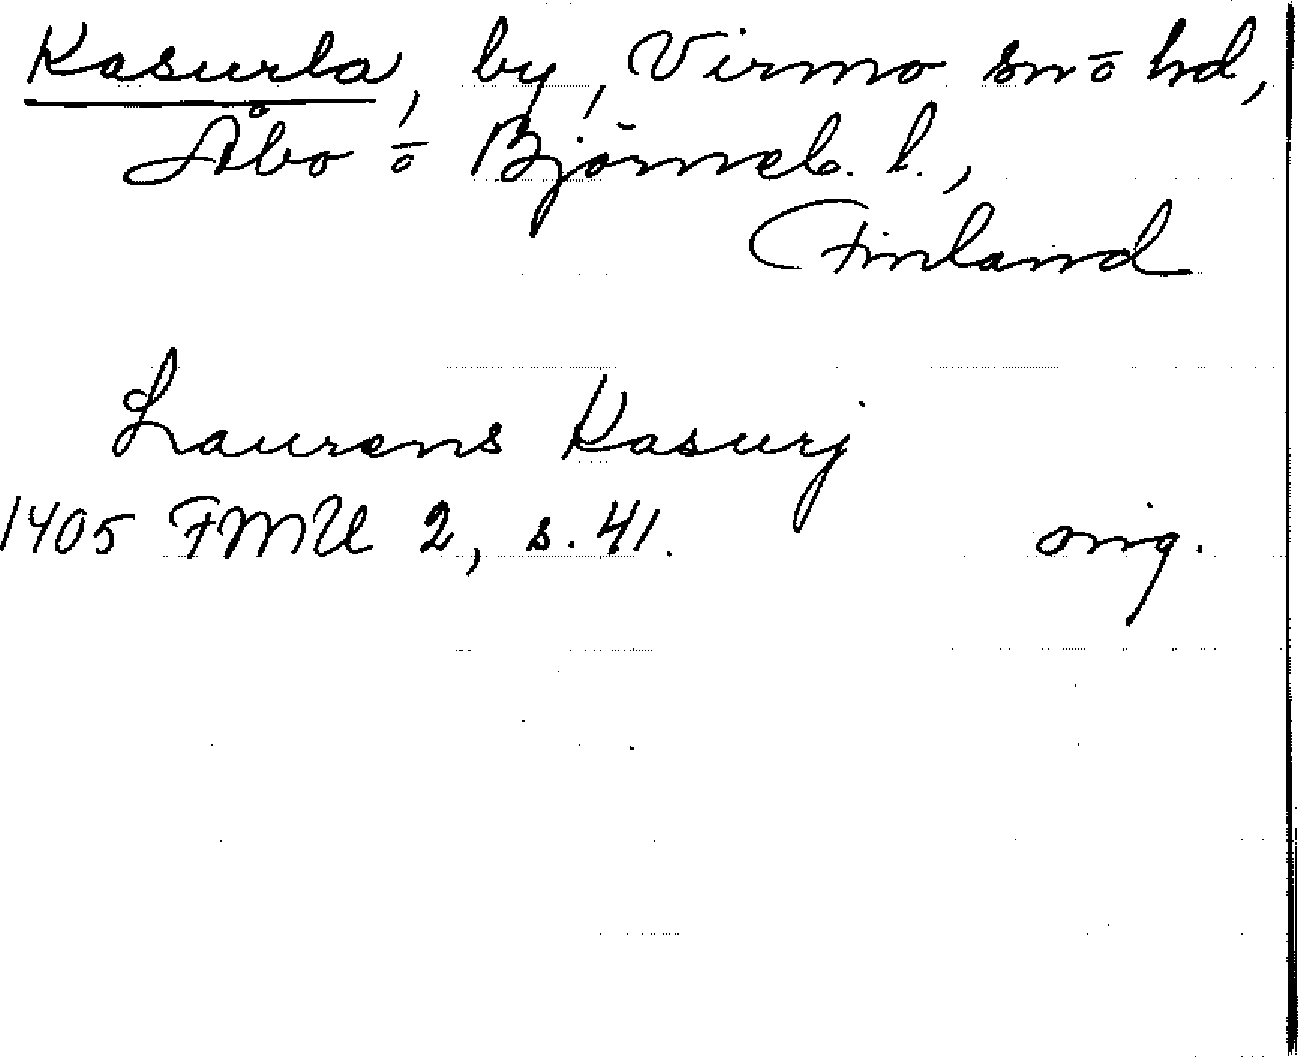 Kasurla, by, Virmo sn o hd,
Åbo o Björneb. l.,
Finland
Laurens Kasurj
1405 FMU 2, s. 41. orig.